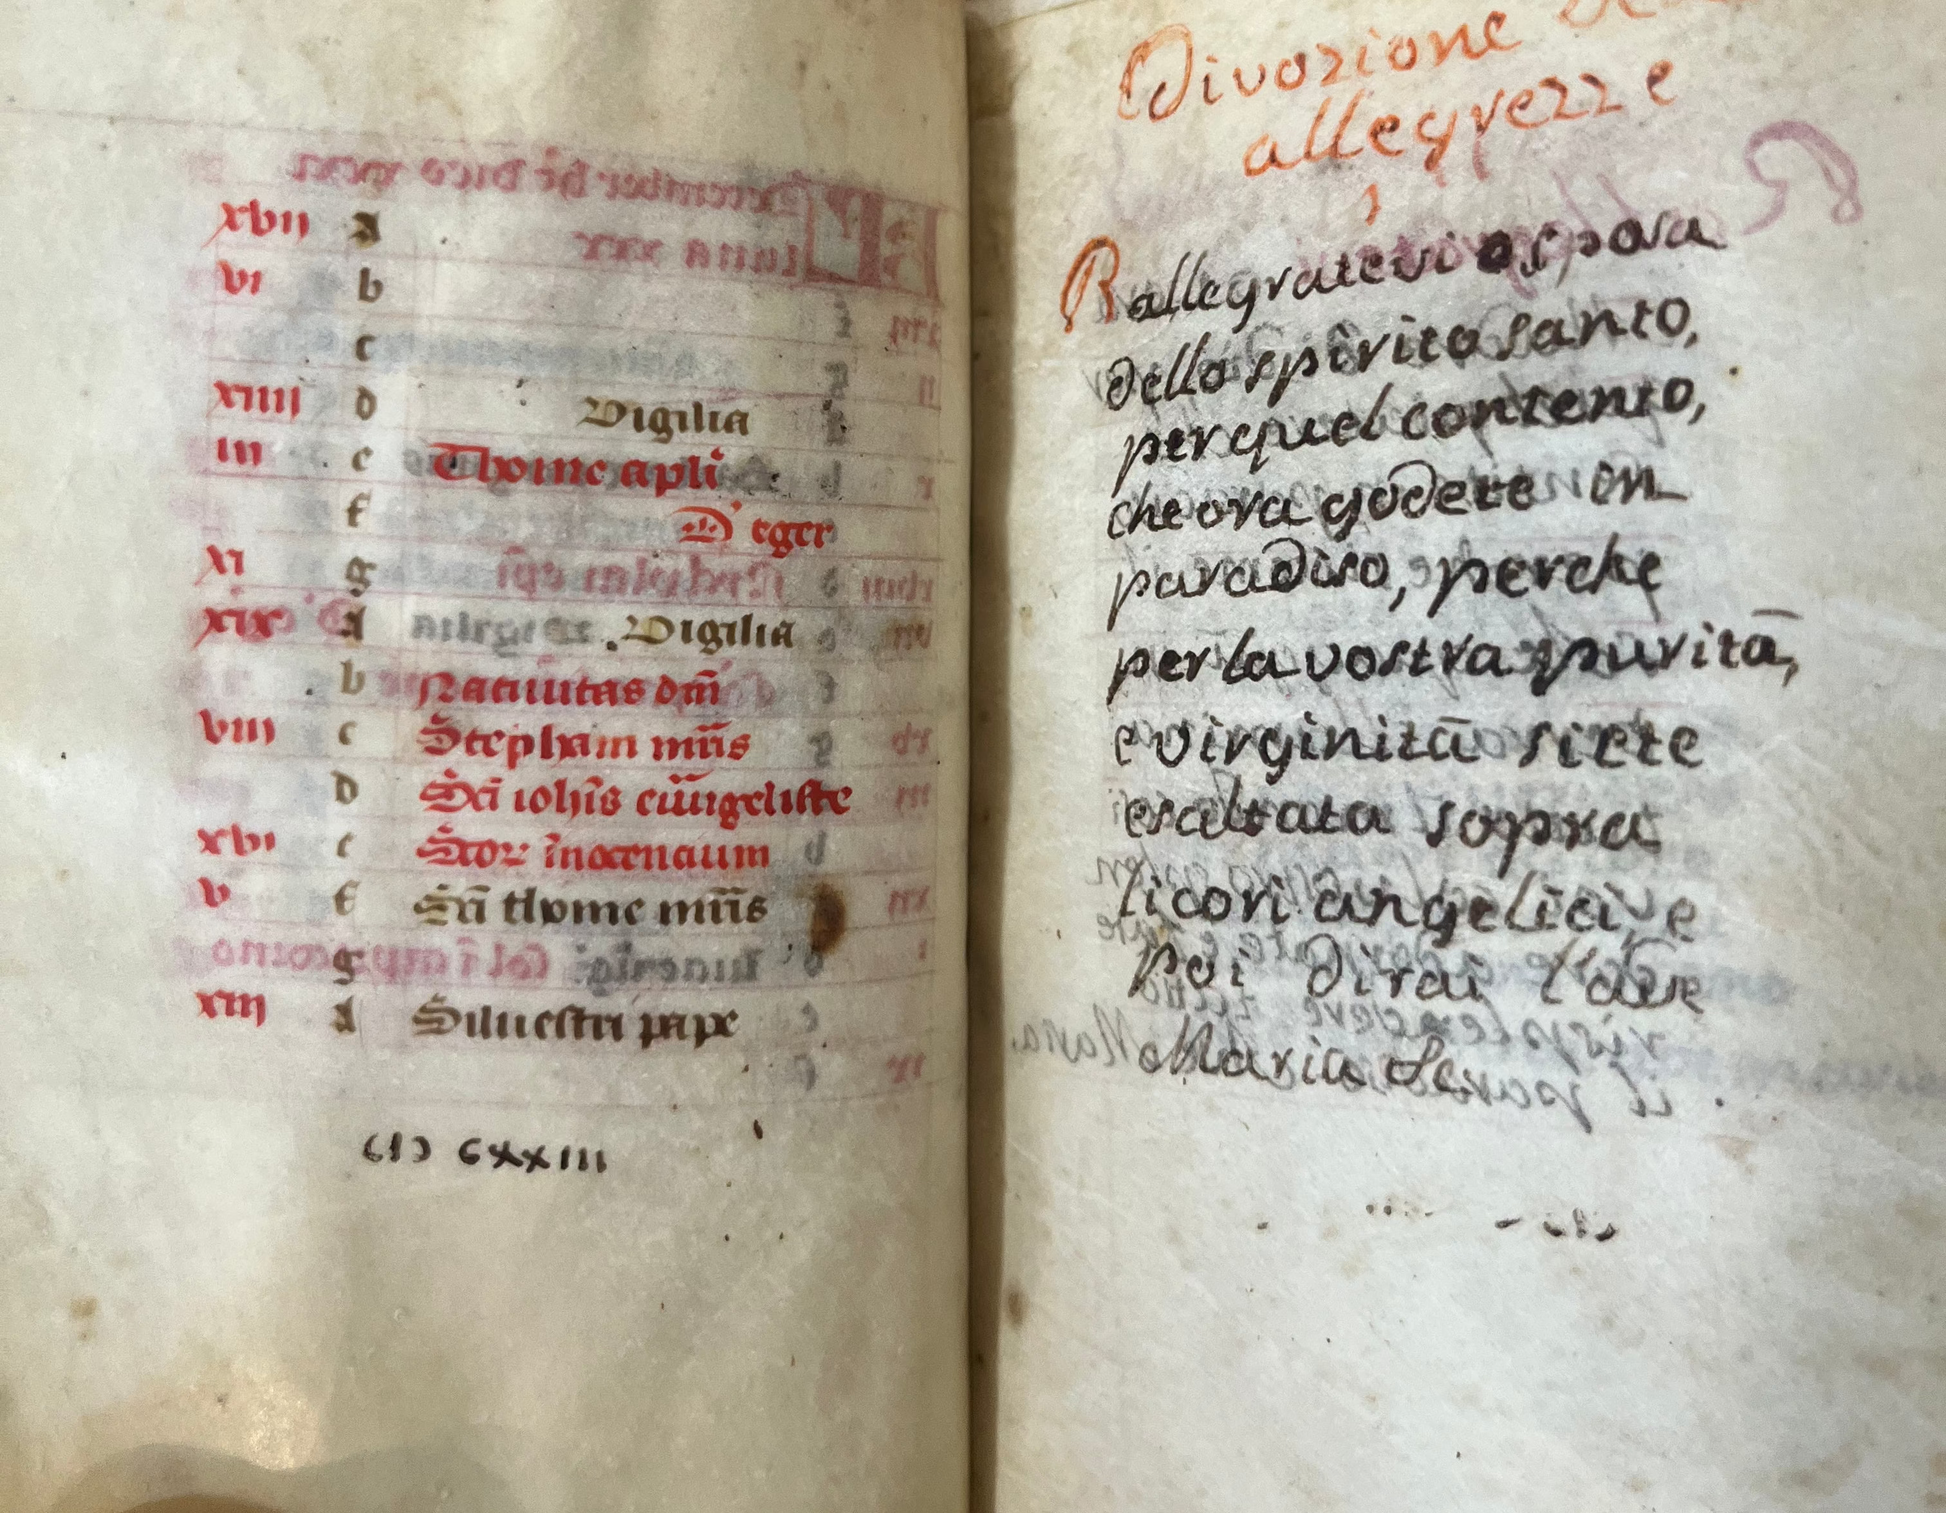 xvii a
vi b
c
xiiii d Vigilia
iii e Thome apli
f D' eger
xi g
xix a Vigilia
b Natiuitas dm̄
viii c Stephani mr̄is
d Sc̄i ioh̄is eūngeliste
xvi e Sc̄or īnocentium
v f Sc̄i thome mr̄is
g
xiii a Siluestri pape
(I) CXXIII
Divozione
allegrezze
Rallegratevi o sposa
dello spirito santo,
per quel contento,
che ora godete in
paradiso, perche
per la vostra purità,
e virginità siete
esaltata sopra
li cori angelici, e
poi dirai l'ave
Maria